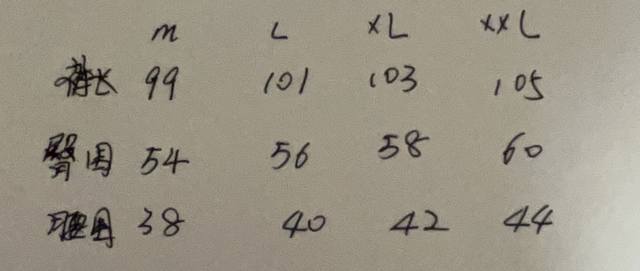 m L XL XXL
裤长 99 101 103 105
臀围 54 56 58 60
腰围 38 40 42 44